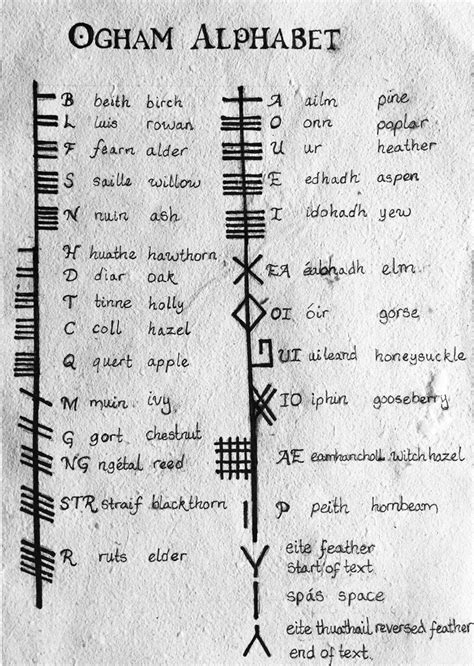 OGHAM ALPHABET
B beith birch
L luis rowan
F fearn alder
S saille willow
N nuin ash
H huathe hawthorn
D diar oak
T tinne holly
C coll hazel
Q quert apple
M muin ivy
G gort chestnut
NG ngétal reed
STR straif blackthorn
R ruts elder
A ailm pine
O onn poplar
U ur heather
E edhadh aspen
I idohadh yew
EA éabhadh elm
OI óir gorse
UI uileand honeysuckle
IO iphin gooseberry
AE eamhancholl witchhazel
P peith hornbeam
eite feather
start of text
spás space
eite thuathail reversed feather
end of text.